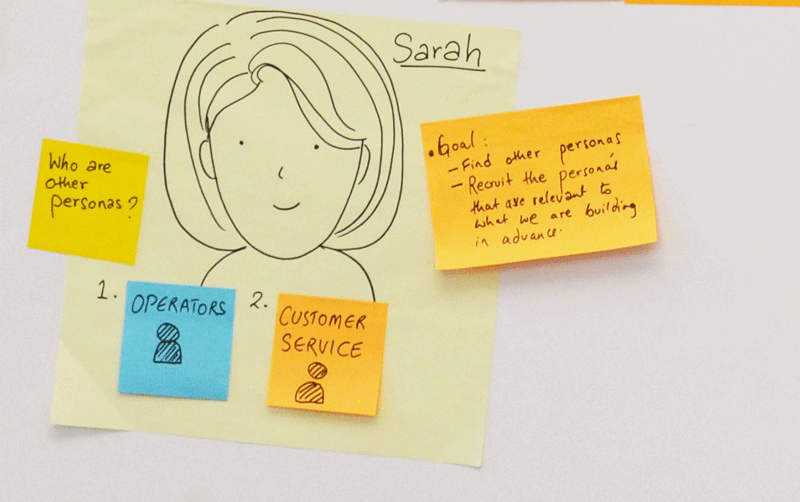 Sarah
Who are
other
personas?
• Goal:
- Find other personas
- Recruit the personas
that are relevant to
what we are building
in advance.
1.
OPERATORS
2.
CUSTOMER
SERVICE